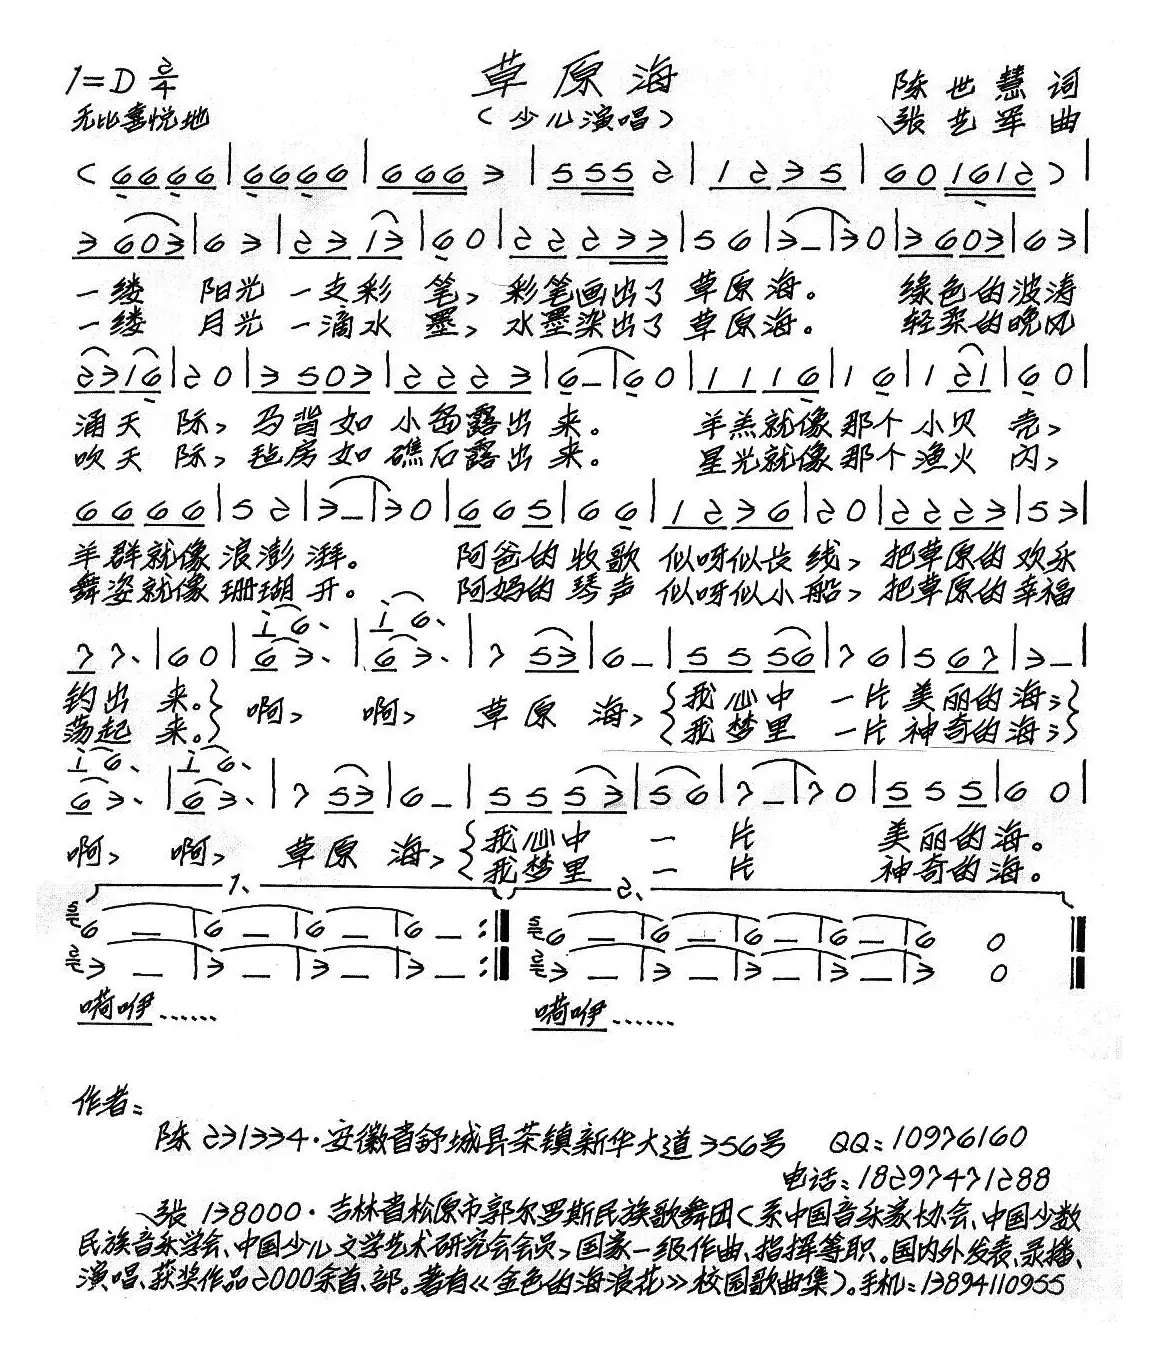 1=D 2/4
草原海
陈世慧 词
无比喜悦地
(少儿演唱)
张艺军 曲
(6666|6666|6663|5552|1235|601612)|
3603|63|2313|60|22233|56|3—|30|3603|63|
一缕 阳光 一支彩 笔,彩笔画出了 草原海。 绿色的波涛
一缕 月光 一滴水 墨,水墨染出了 草原海。 轻柔的晚风
2316|20|3503|2223|6—|60|1116|16|121|60|
涌天 际,马背如 小岛露出 来。 羊羔就像那个小贝 壳,
吹天 际,毡房如 礁石露出 来。 星光就像那个渔火 闪,
6666|52|3—|30|665|66|1236|20|2223|53|
羊群就像浪澎 湃。 阿爸的牧歌 似呀似长 线,把草原的欢乐
舞姿就像珊瑚 开。 阿妈的琴声 似呀似小 船,把草原的幸福
i6、 i6、
77、|60|63、|63、|753|6—|5556|76|567|3—|
钓出 来。} 啊, 啊, 草原 海,{我心中 一片美丽的海;}
荡起 来。} {我梦里 一片神奇的海;}
i6、 i6、
63、|63、|753|6—|5553|56|7—|70|555|60|
啊, 啊, 草原 海,{我心中 一 片 美丽的海。
{我梦里 一 片 神奇的海。
1、 2、
6—|6—|6—|6—:‖ 6—|6—|6—|6—|6 0‖
3—|3—|3—|3—:‖ 3—|3—|3—|3—|3 0‖
嗬咿…… 嗬咿……
作者:
陈 231334·安徽省舒城县茶镇新华大道356号 QQ:10976160
电话:18297471288
张 138000·吉林省松原市郭尔罗斯民族歌舞团(系中国音乐家协会、中国少数
民族音乐学会、中国少儿文学艺术研究会会员,国家一级作曲、指挥等职。国内外发表、录播、
演唱、获奖作品2000余首、部。著有《金色的海浪花》校园歌曲集)。手机:13894110955